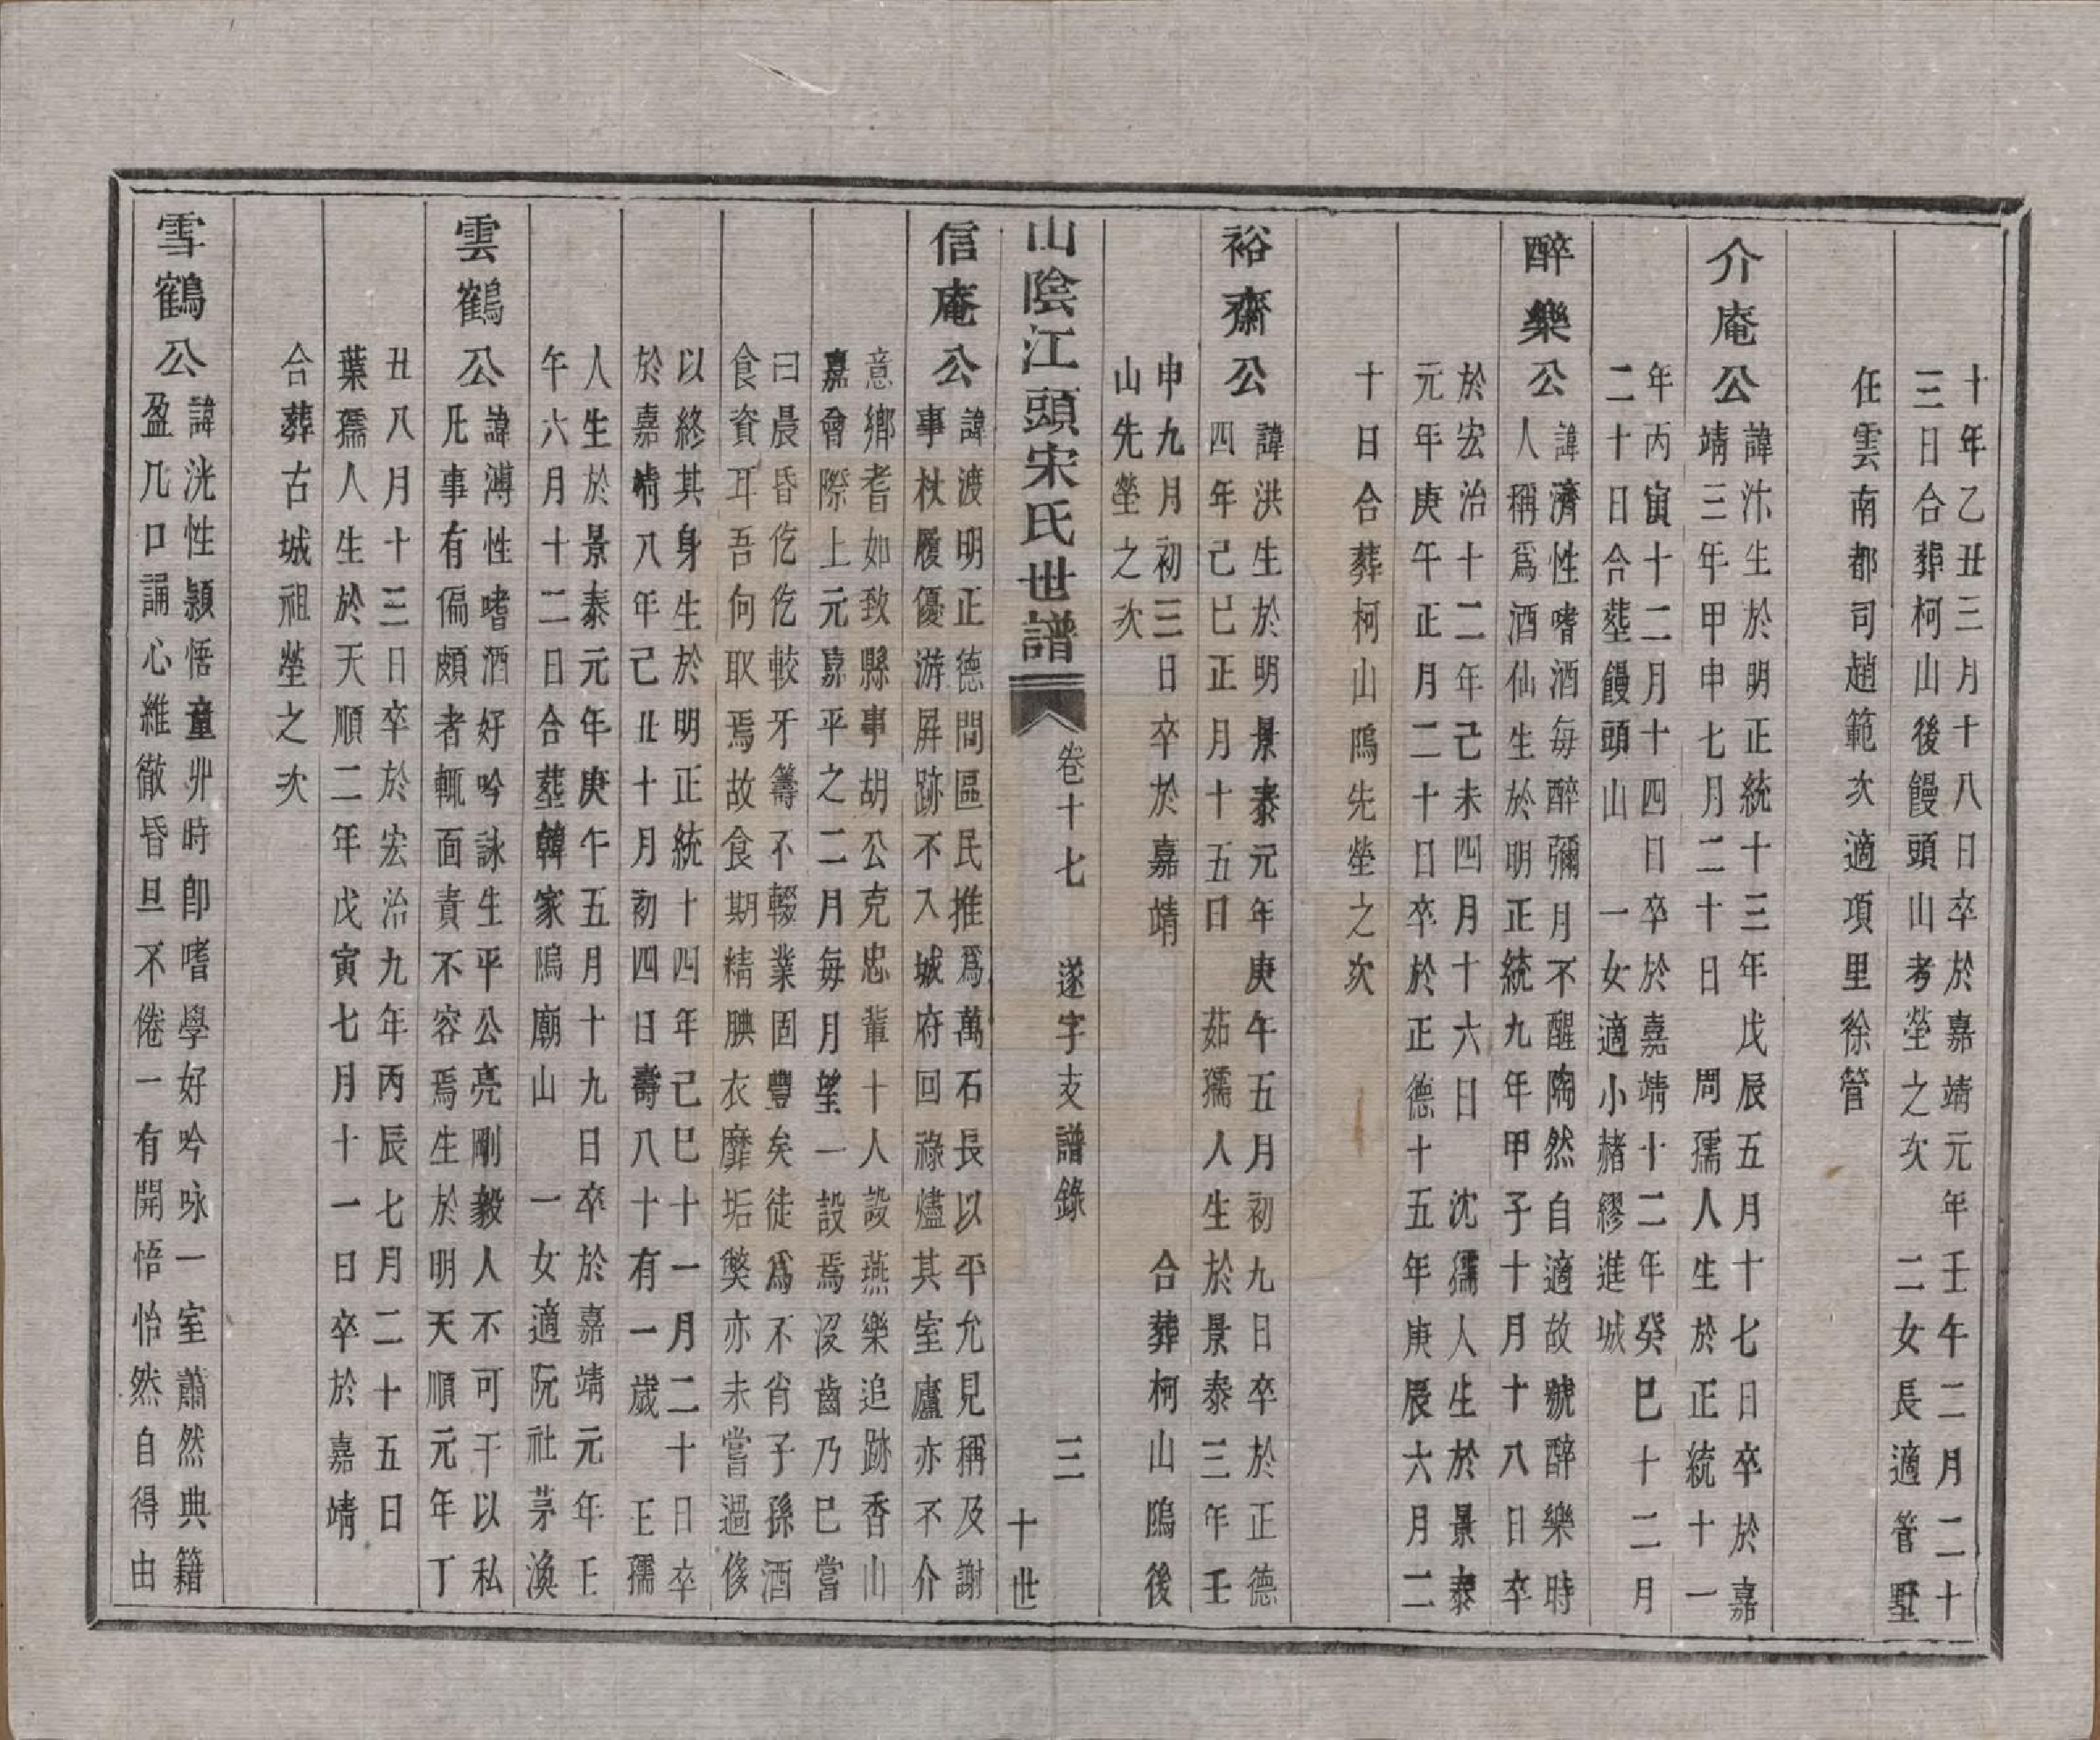 十年乙丑三月十八日卒於嘉靖元年壬午二月二十
三日合葬柯山後饅頭山考塋之次　二女長適管墅
任雲南都司趙範次適項里徐管
介庵公
諱汴生於明正統十三年戊辰五月十七日卒於嘉
靖三年甲申七月二十日　周孺人生於正統十一
年丙寅十二月十四日卒於嘉靖十二年癸巳十二月
二十日合塟饅頭山　一女適小赭繆進城
醉樂公
諱濟性嗜酒每醉彌月不醒陶然自適故號醉樂時
人稱爲酒仙生於明正統九年甲子十月十八日卒
於宏治十二年己未四月十六日　沈孺人生於景泰
元年庚午正月二十日卒於正德十五年庚辰六月二
十日合葬柯山隖先塋之次
裕齋公
諱洪生於明景泰元年庚午五月初九日卒於正德
四年己巳正月十五日　茹孺人生於景泰三年壬
申九月初三日卒於嘉靖　合葬柯山隖後
山先塋之次
山陰江頭宋氏世譜　卷十七　遂字支譜錄　三　十世
信庵公
諱渡明正德間區民推爲萬石長以平允見稱及謝
事杖履優游屏跡不入城府回祿燼其室廬亦不介
意鄉耆如致縣事胡公克忠輩十人設燕樂追跡香山
嘉會際上元嘉平之二月每月望一設焉沒齒乃已嘗
曰晨昏仡仡較牙籌不輟業固豐矣徒爲不肖子孫酒
食資耳吾何取焉故食期精腆衣靡垢獘亦未嘗過侈
以終其身生於明正統十四年己巳十一月二十日卒
於嘉靖八年己丑十月初四日壽八十有一歲　王孺
人生於景泰元年庚午五月十九日卒於嘉靖元年壬
午六月十二日合塟韓家隖廟山　一女適阮社茅渙
雲鶴公
諱溥性嗜酒好吟詠生平公亮剛毅人不可干以私
凡事有偏頗者輒面責不容焉生於明天順元年丁
丑八月十三日卒於宏治九年丙辰七月二十五日
葉孺人生於天順二年戊寅七月十一日卒於嘉靖
合葬古城祖塋之次
雪鶴公
諱洸性穎悟童丱時卽嗜學好吟咏一室蕭然典籍
盈几口誦心維徹昏旦不倦一有開悟怡然自得由